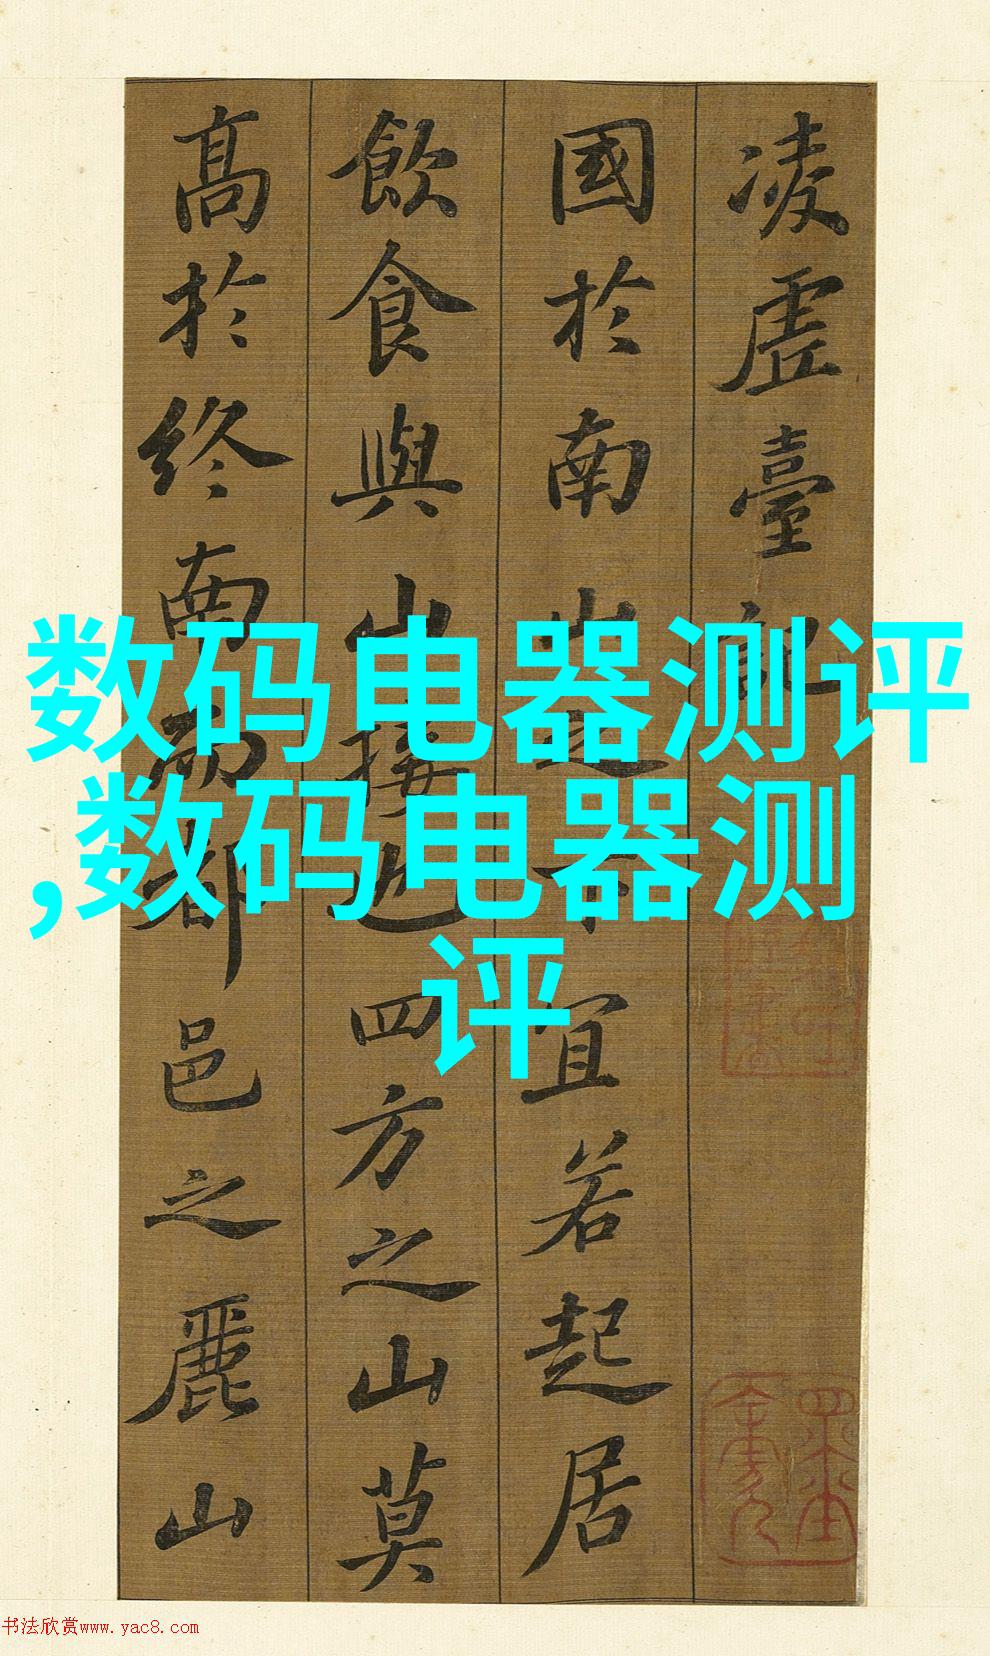 凌虛臺記
國於南山之下宜若起居
飲食與山接也四方之山莫
高於終南而都邑之麗山
数码电器测评
,数码电器测
评
书法欣赏www.yac8.com